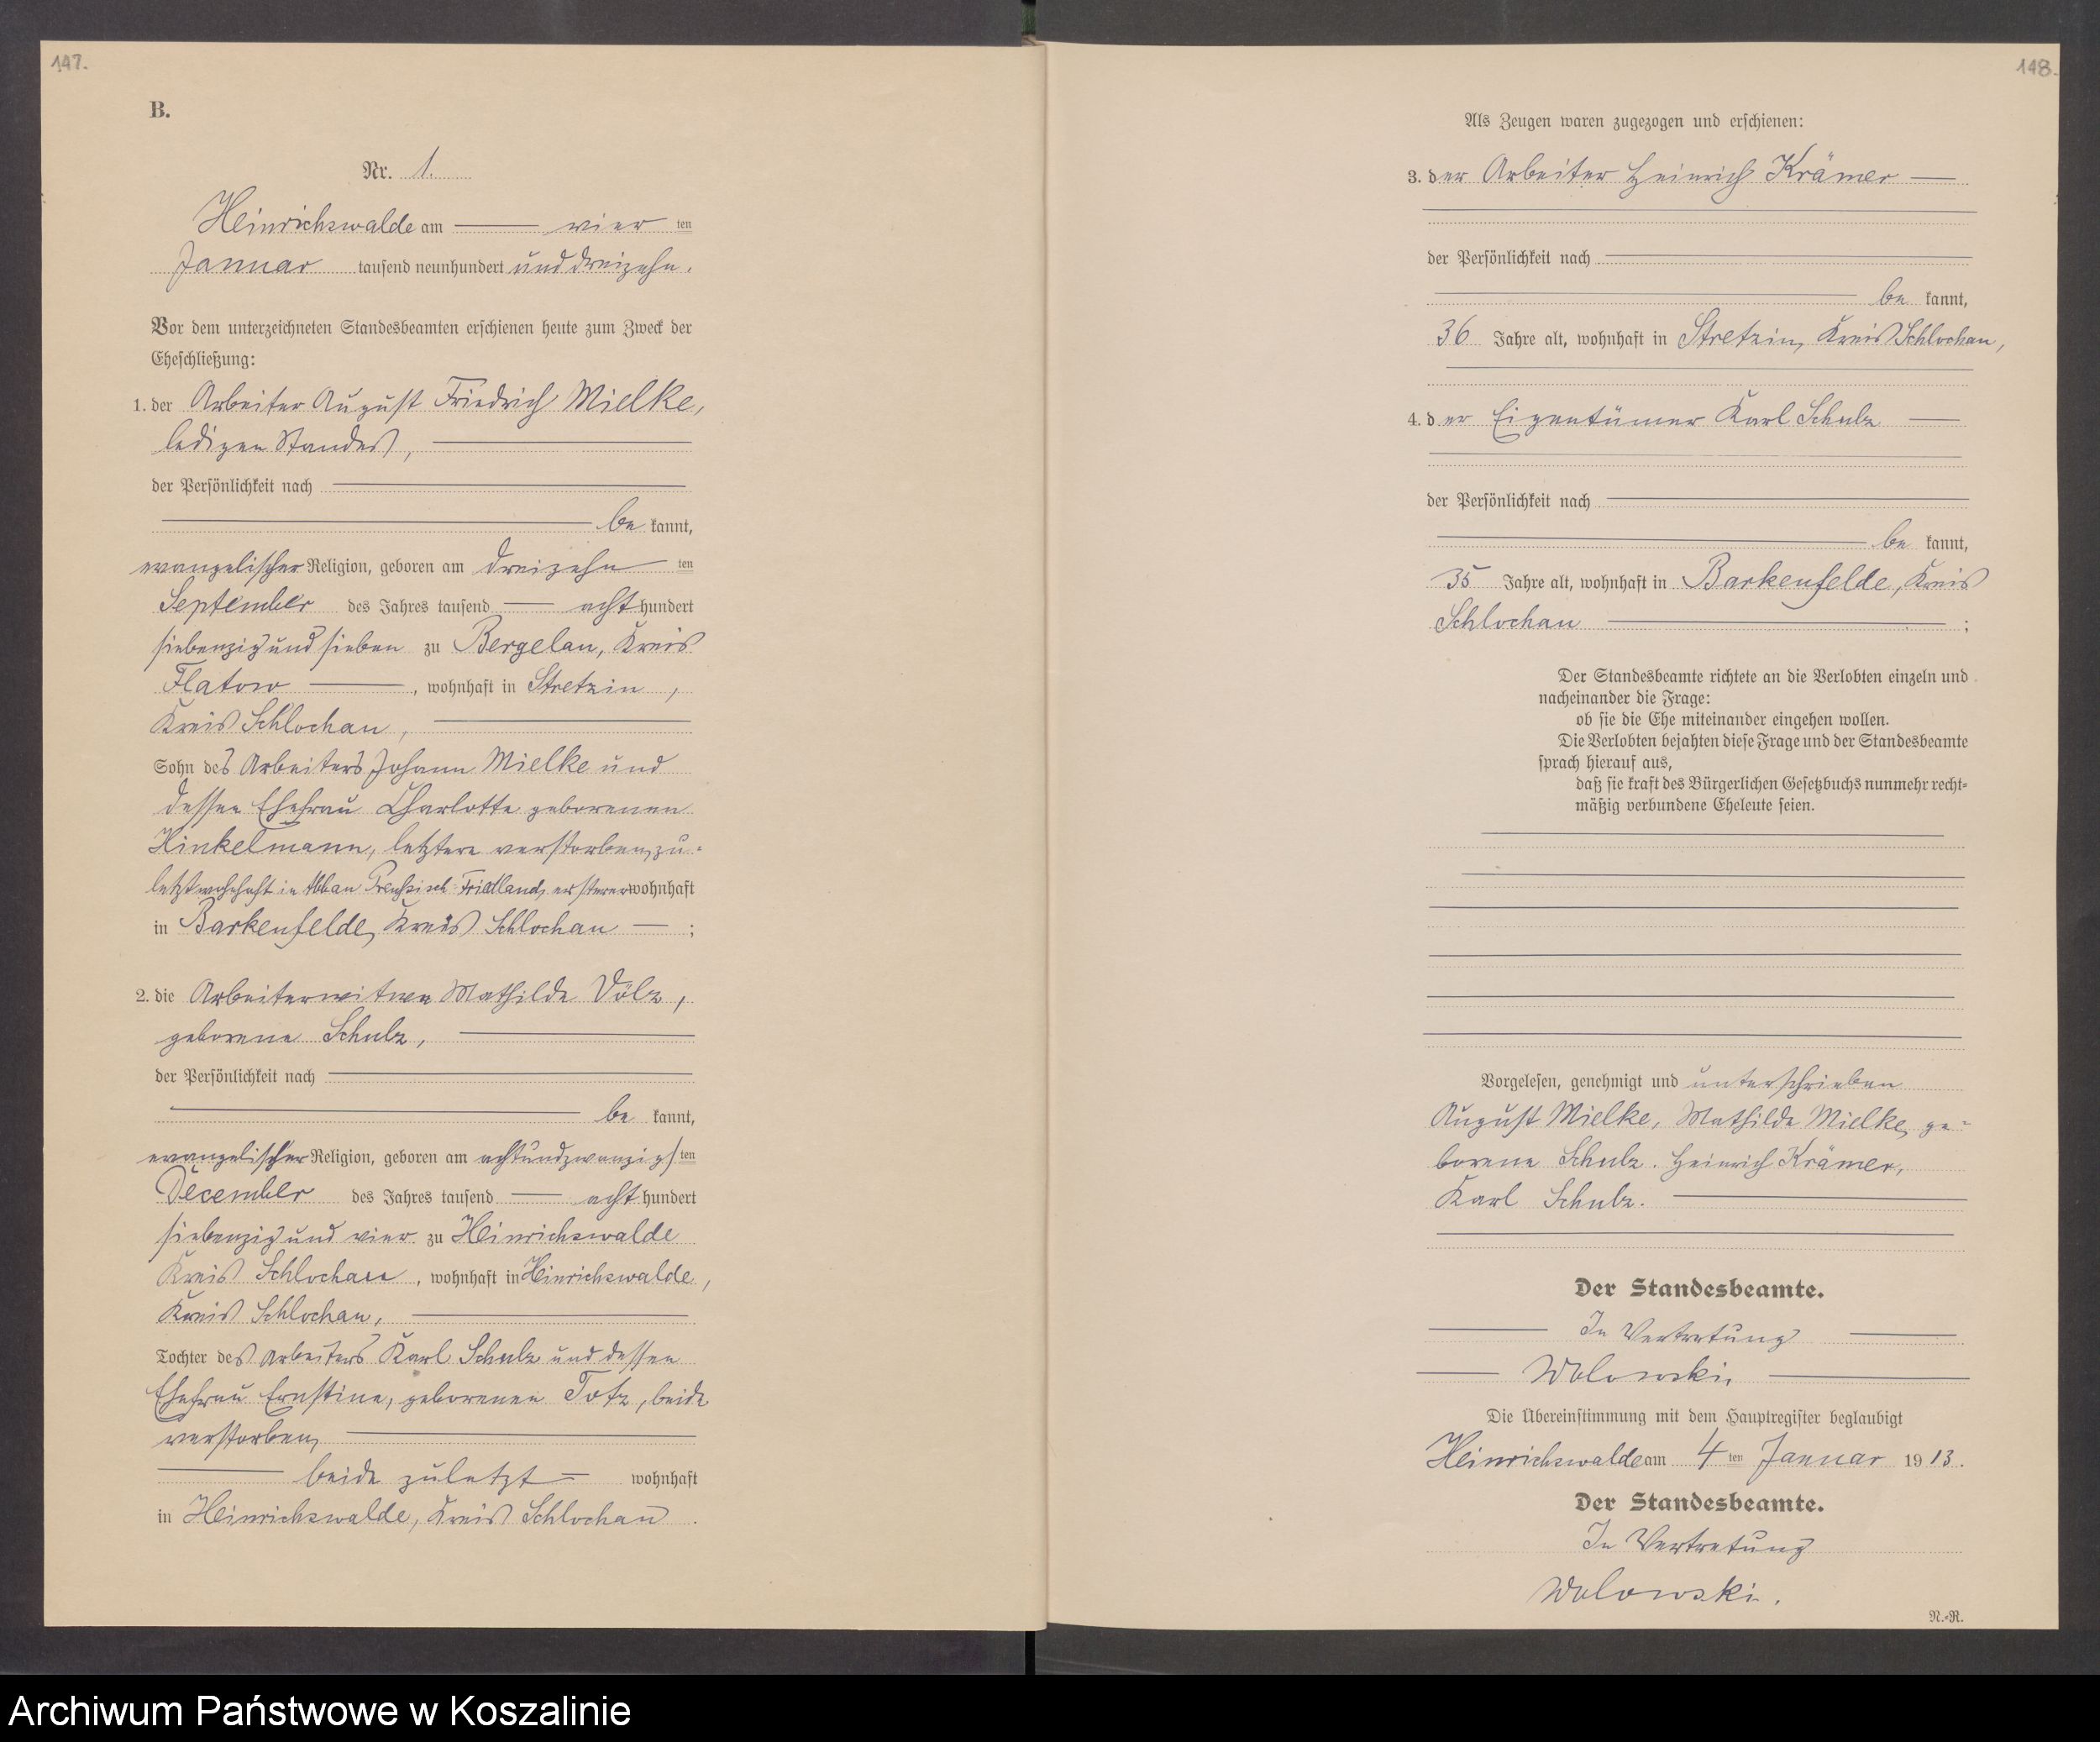 147.
B.
Nr. 1.
Heinrichswalde am vier ten
Januar tausend neunhundert und dreizehn.
Vor dem unterzeichneten Standesbeamten erschienen heute zum Zweck der
Eheschließung:
1. der Arbeiter August Friedrich Mielke,
ledigen Standes,
der Persönlichkeit nach
be kannt,
evangelischer Religion, geboren am dreizehn ten
September des Jahres tausend acht hundert
siebenzig und sieben zu Bergelau, Kreis
Flatow, wohnhaft in Stretzin,
Kreis Schlochau,
Sohn des Arbeiters Johann Mielke und
dessen Ehefrau Charlotte geborenen
Hinkelmann, letztere verstorben, zu-
letzt wohnhaft in Abbau Preußisch-Friedland, ersterer wohnhaft
in Barkenfelde, Kreis Schlochau;
2. die Arbeiterwitwe Mathilde Völz,
geborene Schulz,
der Persönlichkeit nach
be kannt,
evangelischer Religion, geboren am achtundzwanzigsten
December des Jahres tausend acht hundert
siebenzig und vier zu Heinrichswalde
Kreis Schlochau, wohnhaft in Heinrichswalde,
Kreis Schlochau,
Tochter des Arbeiters Karl Schulz und dessen
Ehefrau Ernstine, geborenen Totz, beide
verstorben,
beide zuletzt wohnhaft
in Heinrichswalde, Kreis Schlochau.
148.
Als Zeugen waren zugezogen und erschienen:
3. der Arbeiter Heinrich Krämer
der Persönlichkeit nach
be kannt,
36 Jahre alt, wohnhaft in Stretzin, Kreis Schlochau,
4. der Eigentümer Karl Schulz
der Persönlichkeit nach
be kannt,
35 Jahre alt, wohnhaft in Barkenfelde, Kreis
Schlochau;
Der Standesbeamte richtete an die Verlobten einzeln und
nacheinander die Frage:
ob sie die Ehe miteinander eingehen wollen.
Die Verlobten bejahten diese Frage und der Standesbeamte
sprach hierauf aus,
daß sie kraft des Bürgerlichen Gesetzbuchs nunmehr recht-
mäßig verbundene Eheleute seien.
Vorgelesen, genehmigt und unterschrieben
August Mielke, Mathilde Mielke, ge-
borene Schulz. Heinrich Krämer,
Karl Schulz.
Der Standesbeamte.
In Vertretung
Wolowski.
Die Übereinstimmung mit dem Hauptregister beglaubigt
Heinrichswalde am 4 ten Januar 1913.
Der Standesbeamte.
In Vertretung
Wolowski.
N.-R.
Archiwum Państwowe w Koszalinie